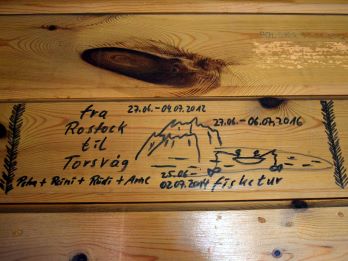 27.06.-09.07.2012
27.06.-06.07.2016
fra
Rostock
til
Torsvåg
25.06-
02.07.2014 fisketur
+ Reini + Rudi + Arne